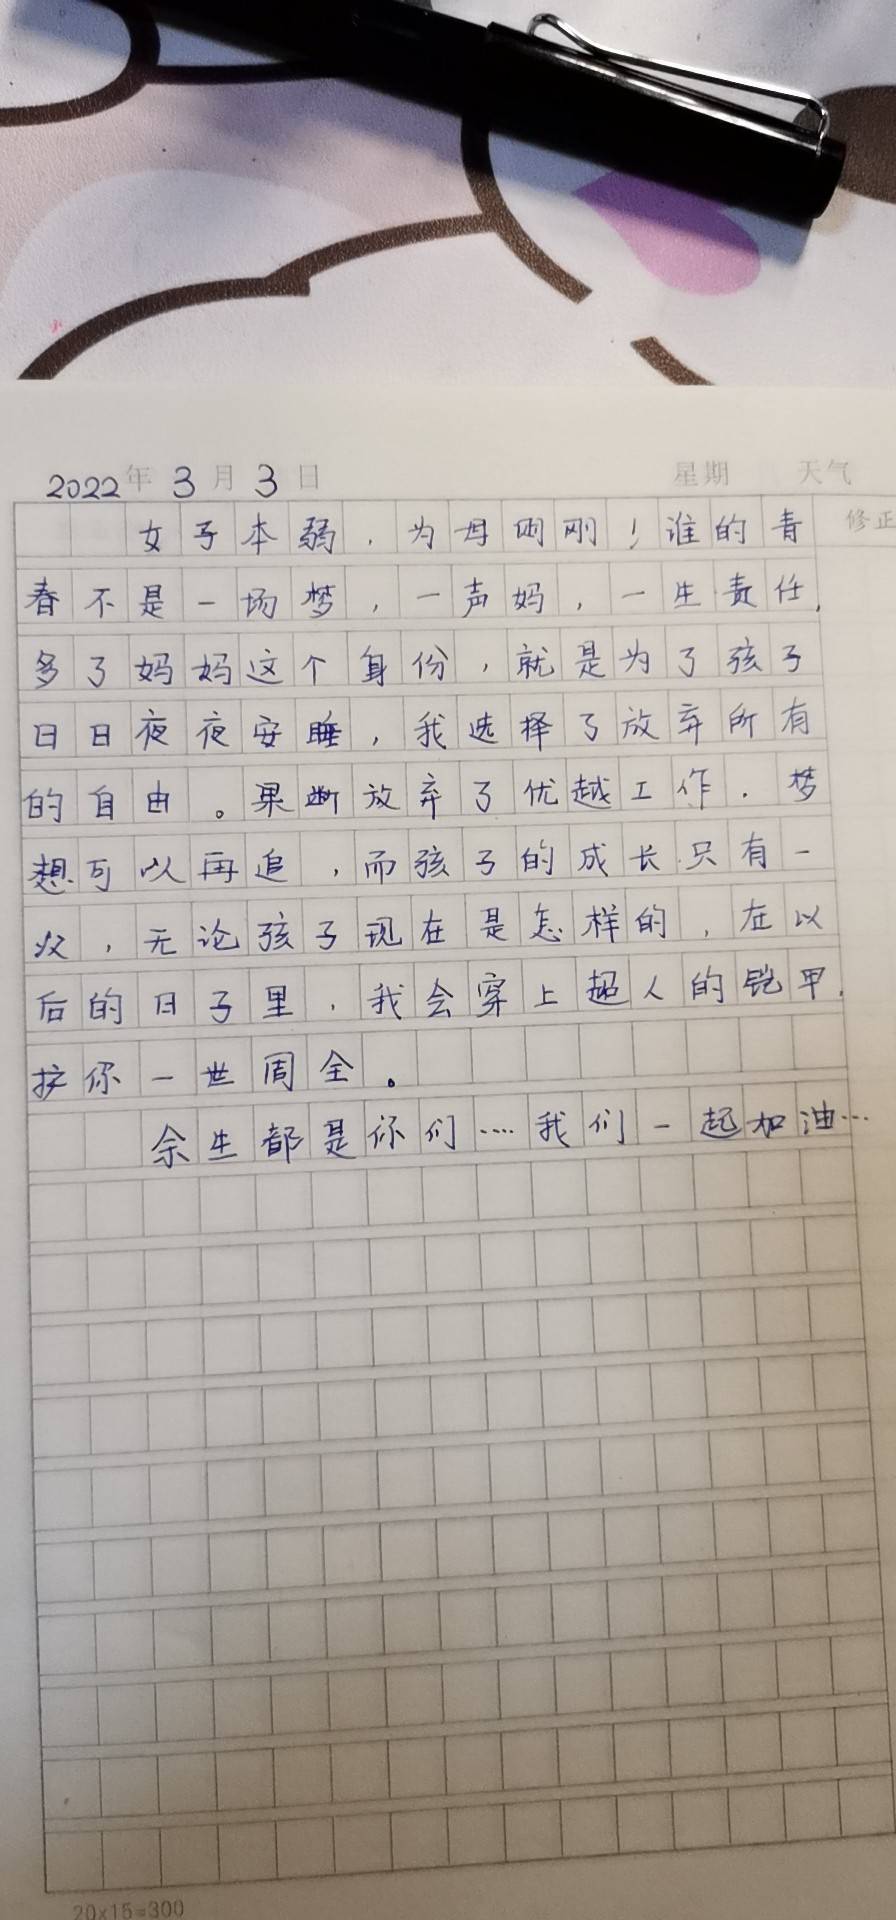 2022年 3月 3日 星期 天气
女子本弱，为母则刚！谁的青 修正
春不是一场梦，一声妈，一生责任，
多了妈妈这个身份，就是为了孩子
日日夜夜安睡，我选择了放弃所有
的自由。果断放弃了优越工作．梦
想可以再追，而孩子的成长只有一
次，无论孩子现在是怎样的，在以
后的日子里，我会穿上超人的铠甲，
护你一世周全。
余生都是你们……我们一起加油…
20×15=300